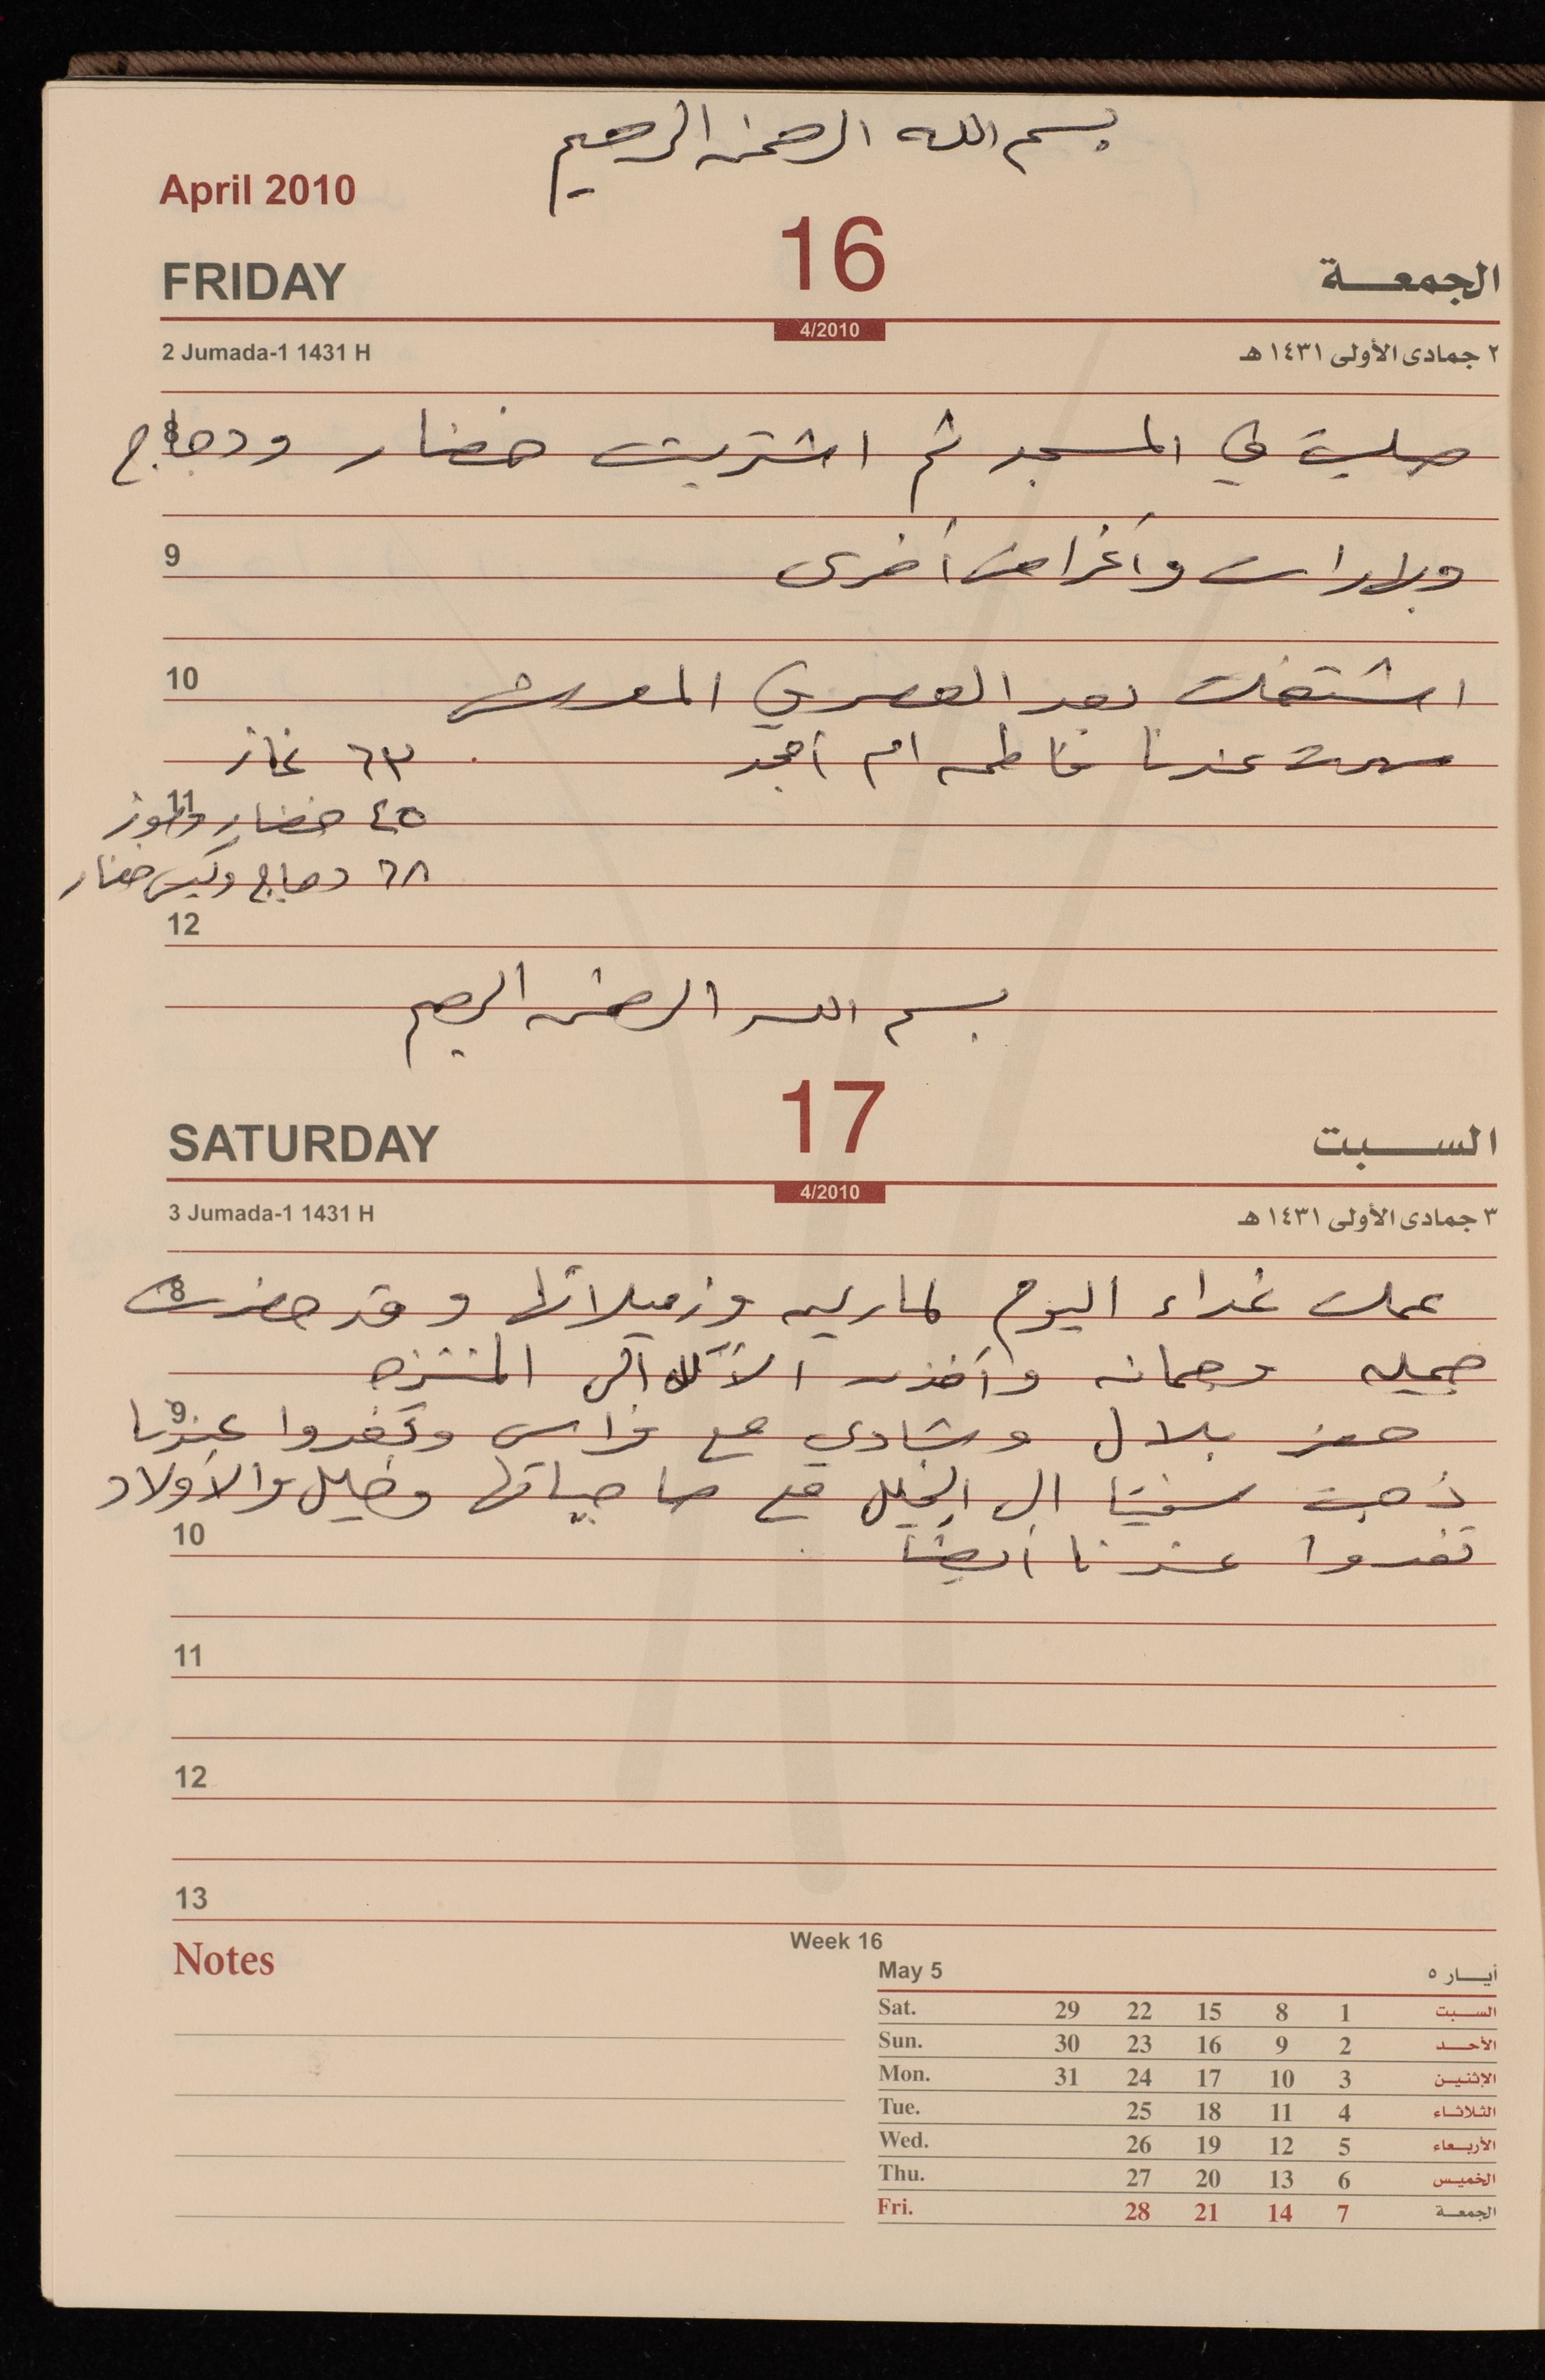 بسم الله الرحمن الرحيم
April 2010
16
FRIDAY الجمعة
4/2010
2 Jumada-1 1431 H ٢ جمادى الأولى ١٤٣١ هـ
8 صليت في المسجد ثم اشتريت خضار ودجاج
9 وأغراض أخرى
10 اشتغلت بعد العصر في
عندنا فاطمه ام أمجد ٦٣ غاز
11 ٤٥ خضار وموز
٦٨ دجاج وكيس خضار
12
بسم الله الرحمن الرحيم
17
SATURDAY السبت
4/2010
3 Jumada-1 1431 H ٣ جمادى الأولى ١٤٣١ هـ
8 عملت غداء اليوم لماريه وزميلاتها وقد حضرت
جميله وجمانه وأخذت الأكل الى المنتزه
9 حضر بلال وشادي مع فراس وتغدوا عندنا
ذهبت الى الخليل مع صاحباتها وخليل والأولاد
10 تغدوا عندنا أيضا
11
12
13
Notes
Week 16
May 5 أيار ٥
Sat. 29 22 15 8 1 السبت
Sun. 30 23 16 9 2 الأحد
Mon. 31 24 17 10 3 الإثنين
Tue. 25 18 11 4 الثلاثاء
Wed. 26 19 12 5 الأربعاء
Thu. 27 20 13 6 الخميس
Fri. 28 21 14 7 الجمعة